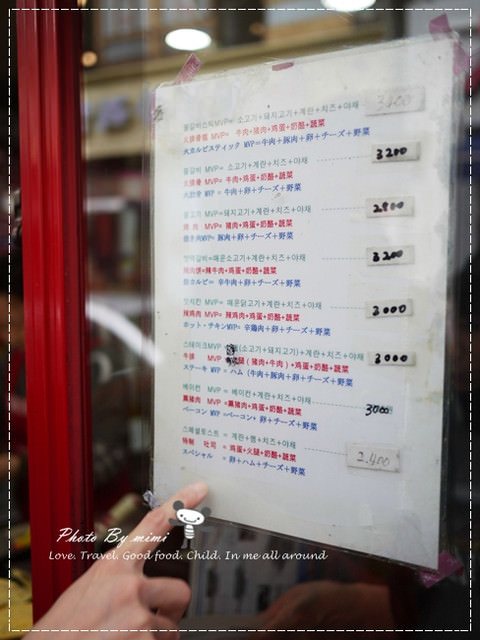 불갈비스틱MVP= 소고기+돼지고기+계란+치즈+야채 3400
火排骨條 MVP= 牛肉+猪肉+鸡蛋+奶酪+蔬菜
火カルビスティック MVP=牛肉+豚肉+卵+チーズ+野菜
불갈비 MVP= 소고기+계란+치즈+야채 3200
火排骨 MVP= 牛肉+鸡蛋+奶酪+蔬菜
火肋骨 MVP = 牛肉+卵+チーズ+野菜
불고기 MVP=돼지고기+계란+치즈+야채 2800
烤 肉 MVP= 猪肉+鸡蛋+奶酪+蔬菜
焼き肉MVP= 豚肉+卵+チーズ+野菜
떡갈비=매운소고기+계란+치즈+야채 3200
辣肉饼=辣牛肉+鸡蛋+奶酪+蔬菜
餅カルビ= 辛牛肉+卵+チーズ+野菜
핫치킨 MVP= 매운닭고기+계란+치즈+야채 3000
辣鸡肉 MVP= 辣鸡肉+鸡蛋+奶酪+蔬菜
ホット・チキンMVP= 辛鶏肉+卵+チーズ+野菜
스테이크MVP (소고기+돼지고기)+계란+치즈+야채 3000
牛排 MVP 腿(猪肉+牛肉)+鸡蛋+奶酪+蔬菜
ステーキ MVP = ハム (牛肉+豚肉+卵+チーズ+野菜
베이컨 MVP = 베이컨+계란+치즈+야채 3000
薰猪肉 MVP =薰猪肉+鸡蛋+奶酪+蔬菜
ベーコン MVP =ベーコン+ 卵+チーズ+野菜
스페셜토스트 = 계란+햄+치즈+야채 2,400
特制 吐司 = 鸡蛋+火腿+奶酪+蔬菜
スペシャル = 卵+ハム+チーズ+野菜
Photo By mimi
Love. Travel. Good food. Child. In me all around